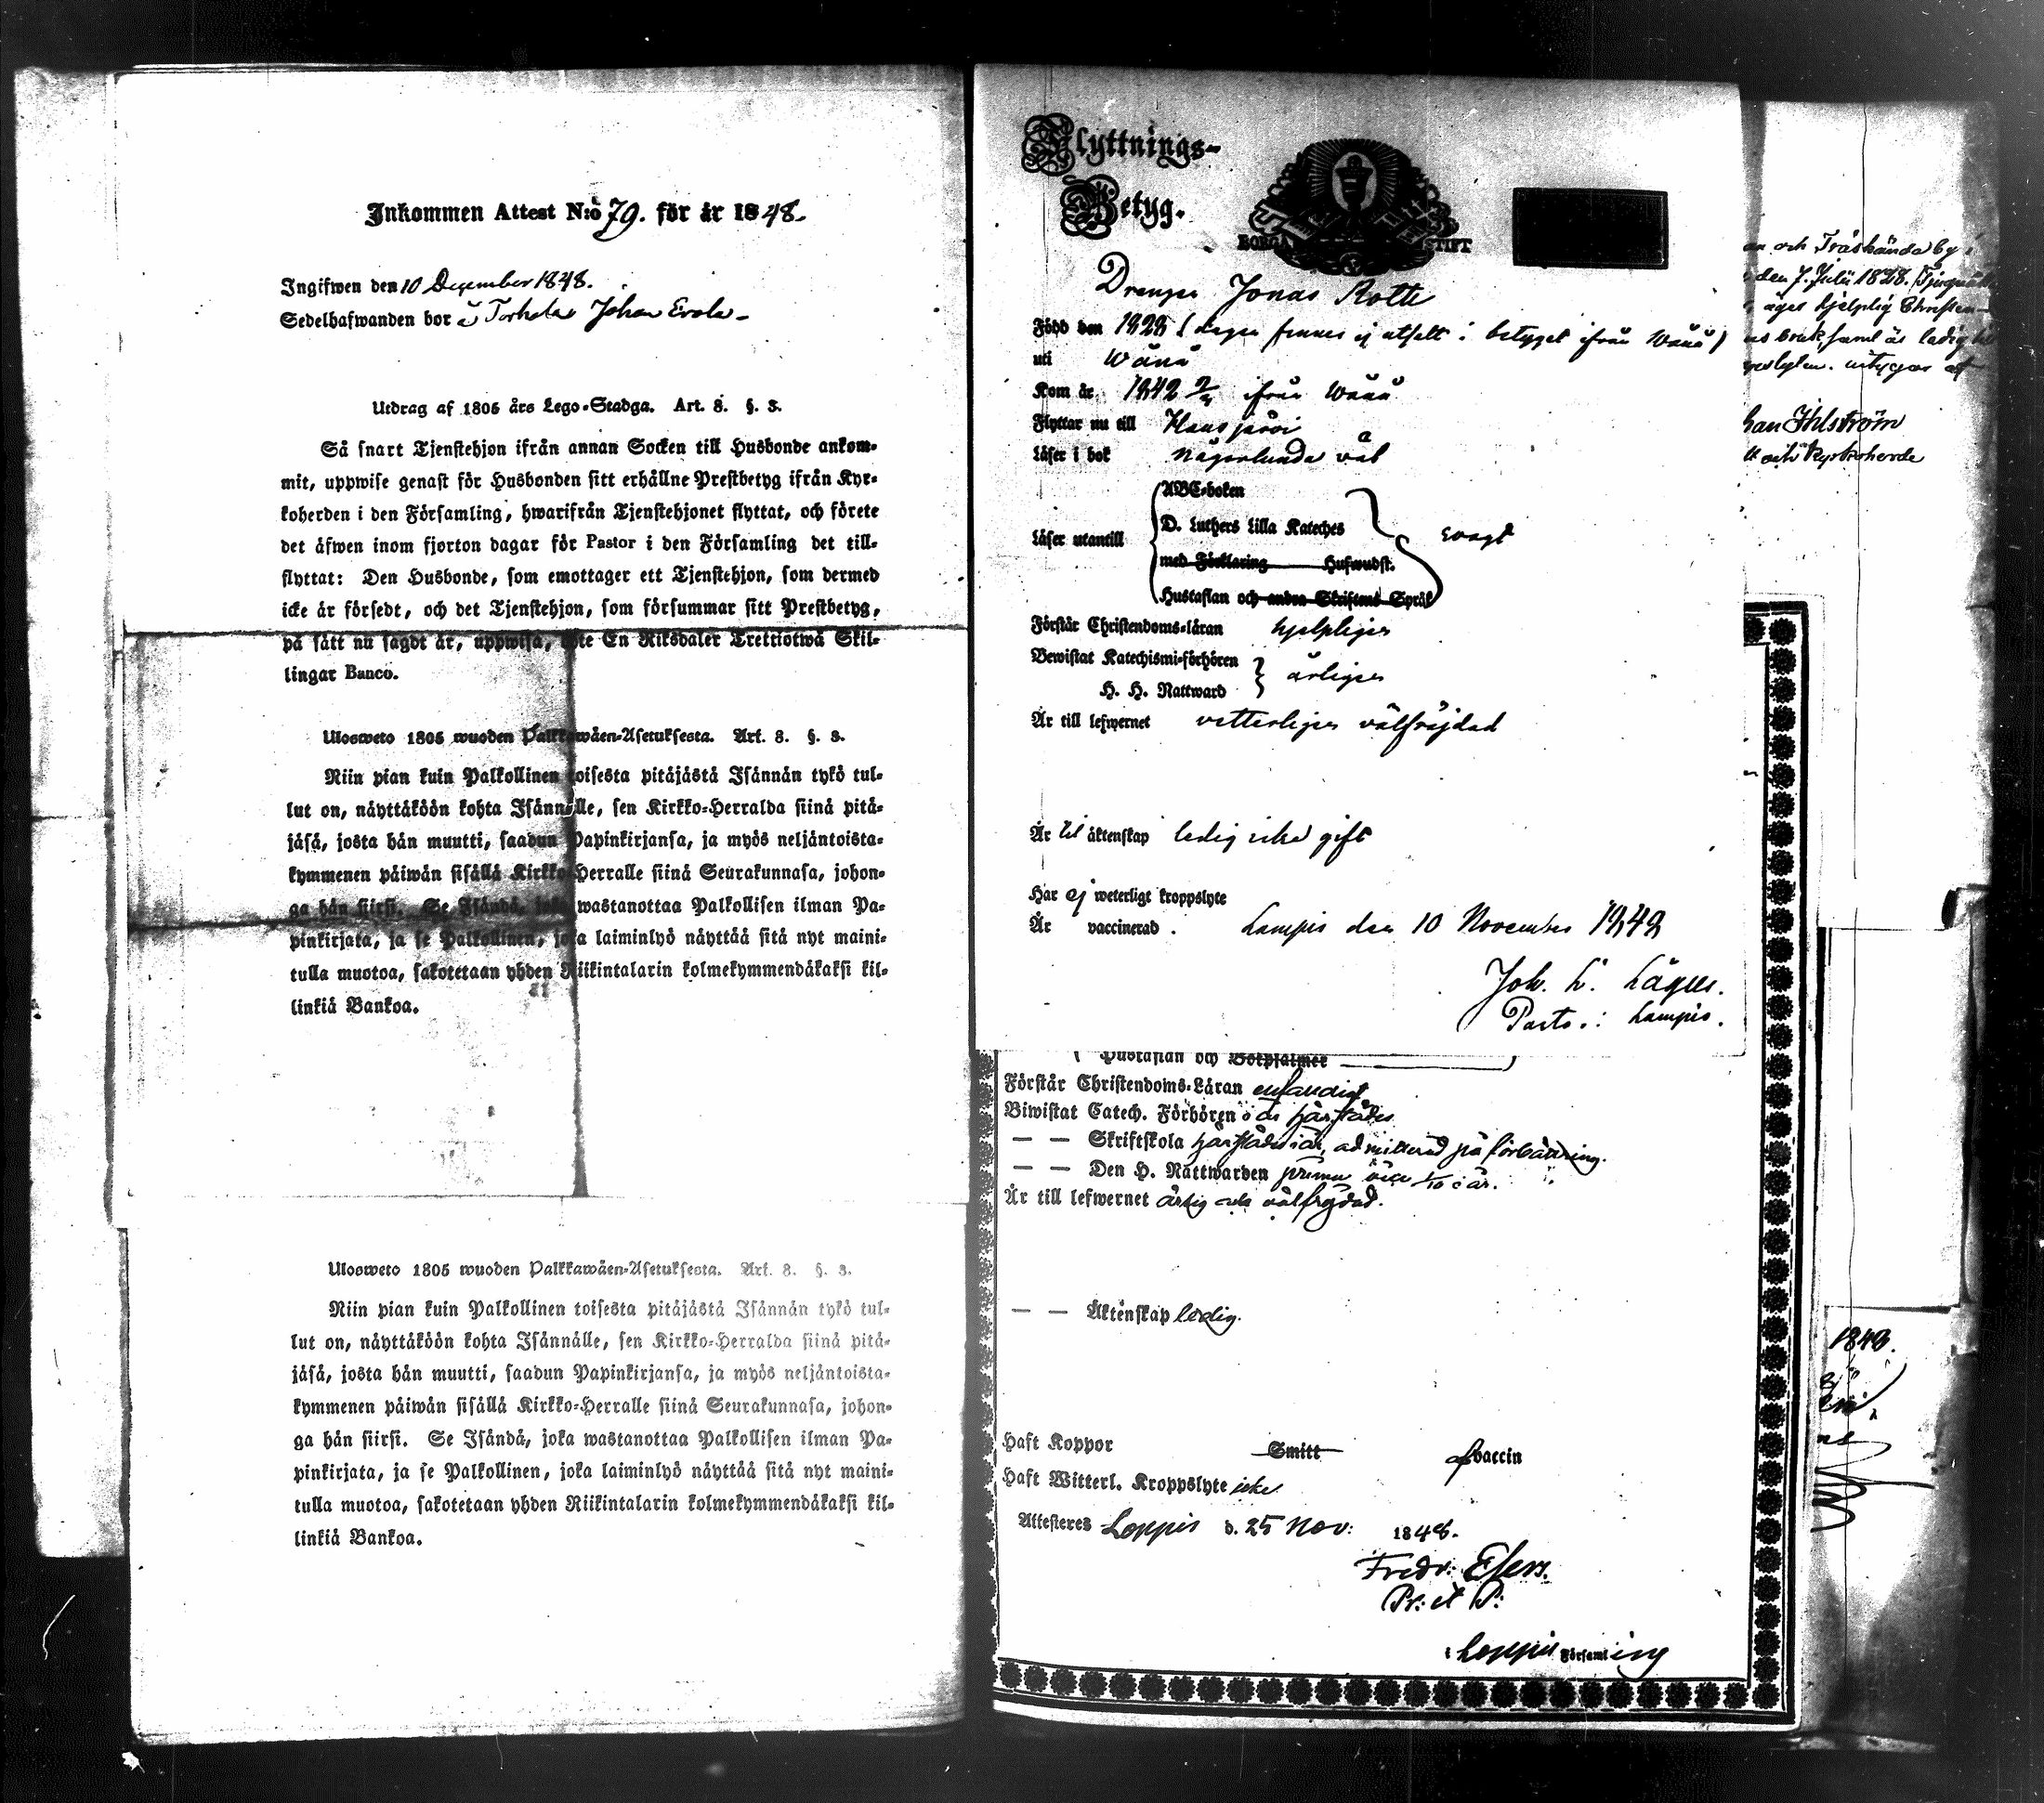 Inkommen Attest N:o 79. för år 1848.
Ingifwen den 10 December 1848.
Sedelhafwanden bor å Torhola Johan Erola
Utdrag af 1805 års Lego-Stadga. Art. 8. §. 3.
Så snart Tjenstehjon ifrån annan Socken till Husbonde ankom-
mit, uppwise genast för Husbonden sitt erhållne Prestbetyg ifrån Kyr-
koherden i den Församling, hwarifrån Tjenstehjonet flyttat, och förete
det äfwen inom fjorton dagar för Pastor i den Församling det till-
flyttat: Den Husbonde, som emottager ett Tjenstehjon, som dermed
icke är försedt, och det Tjenstehjon, som försummar sitt Prestbetyg,
på sätt nu sagdt är, uppwisa, böte En Riksdaler Trettiotwå Skil-
lingar Banco.
Ulosweto 1805 wuoden Palkkawäen-Asetuksesta. Art. 8. §. 3.
Niin pian kuin Palkollinen toisesta pitäjästä Isännän tykö tul-
lut on, näyttäköön kohta Isännälle, sen Kirkko-Herralda siinä pitä-
jäsä, josta hän muutti, saadun Papinkirjansa, ja myös neljäntoista-
kymmenen päiwän sisällä Kirkko-Herralle siinä Seurakunnasa, johon-
ga hän siirsi. Se Isändä, joka wastanottaa Palkollisen ilman Pa-
pinkirjata, ja se Palkollinen, joka laiminlyö näyttää sitä nyt maini-
tulla muotoa, sakotetaan yhden Riikintalarin kolmekymmendäkaksi kil-
linkiä Bankoa.
Ulosweto 1805 wuoden Palkkawäen-Asetuksesta. Art. 8. §. 3.
Niin pian kuin Palkollinen toisesta pitäjästä Isännän tykö tul-
lut on, näyttäköön kohta Isännälle, sen Kirkko-Herralda siinä pitä-
jäsä, josta hän muutti, saadun Papinkirjansa, ja myös neljäntoista-
kymmenen päiwän sisällä Kirkko-Herralle siinä Seurakunnasa, johon-
ga hän siirsi. Se Isändä, joka wastanottaa Palkollisen ilman Pa-
pinkirjata, ja se Palkollinen, joka laiminlyö näyttää sitä nyt maini-
tulla muotoa, sakotetaan yhden Riikintalarin kolmekymmendäkaksi kil-
linkiä Bankoa.
Flyttnings-
Betyg.
BORGÅ STIFT
Drengen Jonas Rotti
Född den 1828 (dagen finnes ej utsatt i betyget ifrån Wånå)
uti Wånå
Kom år 1842 ifrån Wånå
Flyttar nu till Hausjärvi
Läser i bok någorlunda väl
Läser utantill
ABC-boken
D. Luthers Lilla Kateches
med Förklaring Hufwudst.
Hustaflan och andra Skriftens Språk
svagt
Förstår Christendoms-läran hjelpligen
Bewistat Katechismi-förhören
H. H. Nattward
årligen
Är till lefwernet vetterligen välfrejdad
Är til äktenskap ledig icke gift
Har ej weterligt kroppslyte
Är vaccinerad.
Lampis den 10 November 1848
Joh. L.
Past. i Lampis.
Hustaflan och Botpsalmer
Förstår Christendoms-Läran enfaldigt
Biwistat Catech. Förhören härstädes
— — Skriftskola härstädes i år, admitterad på förbättring.
— — Den H. Nattwarden i år.
Är till lefwernet ärlig och välfrejdad.
— — Äktenskap ledig.
Haft Koppor Smitt af vaccin
Haft Witterl. Kroppslyte icke
Attesteres Loppis d. 25 Nov: 1848.
Fredr. Elfers.
Pr: et P:
i Loppis Församling
och Träskända by i
den 7 Julii 1828.
äger hjelplig Christen-
bruk, samt är ledig
Ihlström
Kyrkoherde
1848.